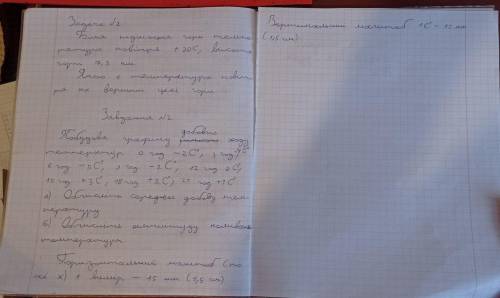 Задача №2
Біля підніжжя гори темпе
ратура повітря +20С, висота
гори 4,3 км.
Якою є температура повіт
ря на вершині цієї гори
Завдання №2
добового
Побудова графіку ходу
температур 0 год -2С, 3 год
6 год -5С, 9 год -2С, 12 год 0С,
15 год +3С, 18 год +2С, 21 год +1С
а) Обчислити середню добову тем
пературу
б) Обчислити амплітуду коливань
температури
Горизонтальний масштаб
х) 1 вимір - 15 мм (1,5 см)
Вертикальний масштаб 1С - 15 мм
(1,5 см)